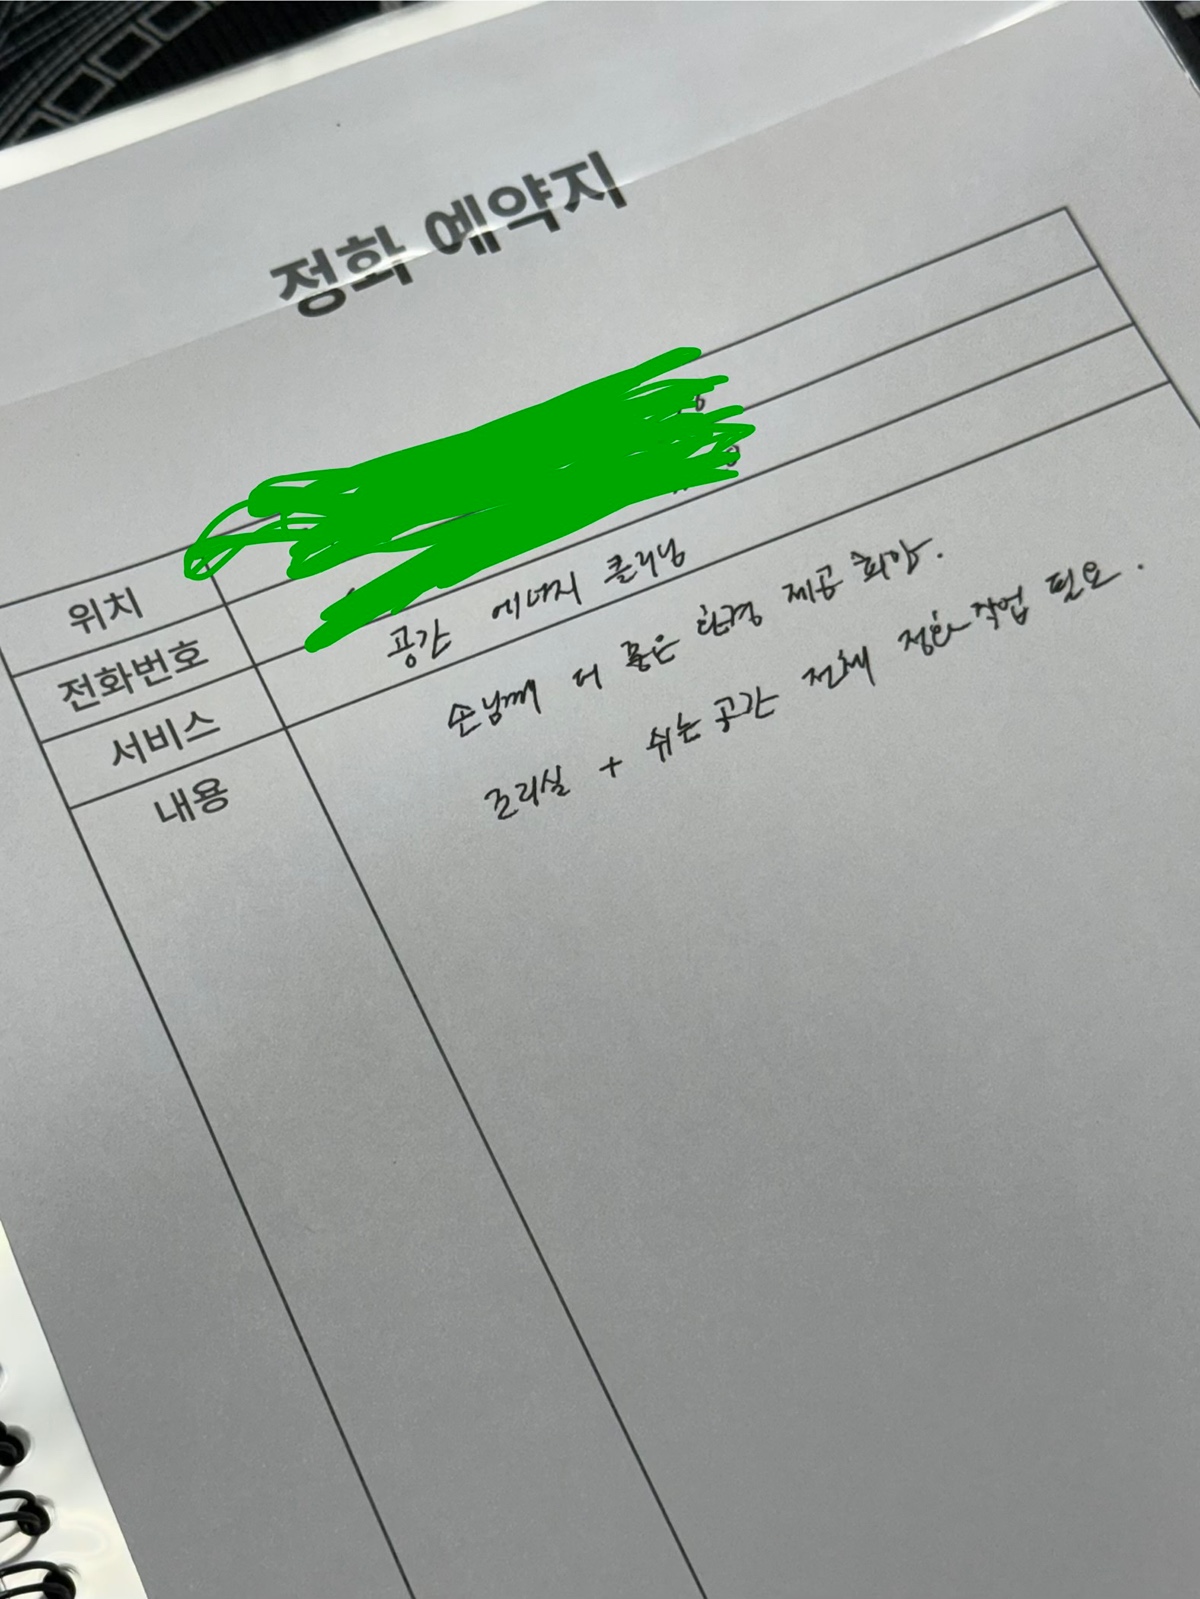 정화 예약지
위치
전화번호
서비스 공간 에너지 클리닝
내용 손님께 더 좋은 환경 제공 희망.
조리실 + 쉬는 공간 전체 정화 작업 필요.